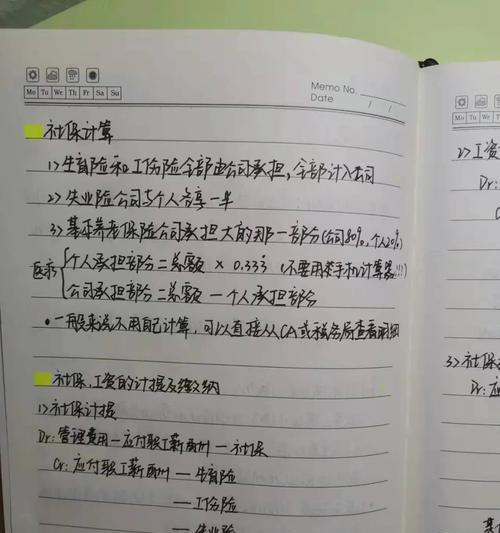 Mo Tu We Th Fr Sa Su
Memo No.
Date / /
社保计算
1) 生育险和工伤险全部由公司承担,全部计入公司
2) 失业险公司与个人各享一半
3) 基本养老保险公司承担大的那一部分(公司80%,个人20%)
医疗 { 个人承担部分=总额 × 0.333 (不要用苹手机计算器!!!)
公司承担部分=总额-个人承担部分
• 一般来说不用自己计算,可以直接从CA或税务局查看明细
社保、工资的计提及缴纳
1) 社保计提
Dr: 管理费用-应付职工薪酬-社保
Cr: 应付职工薪酬-生育险
-工伤险
-失业险
2) 工资
Dr:
3) 社保
Dr: 应
基